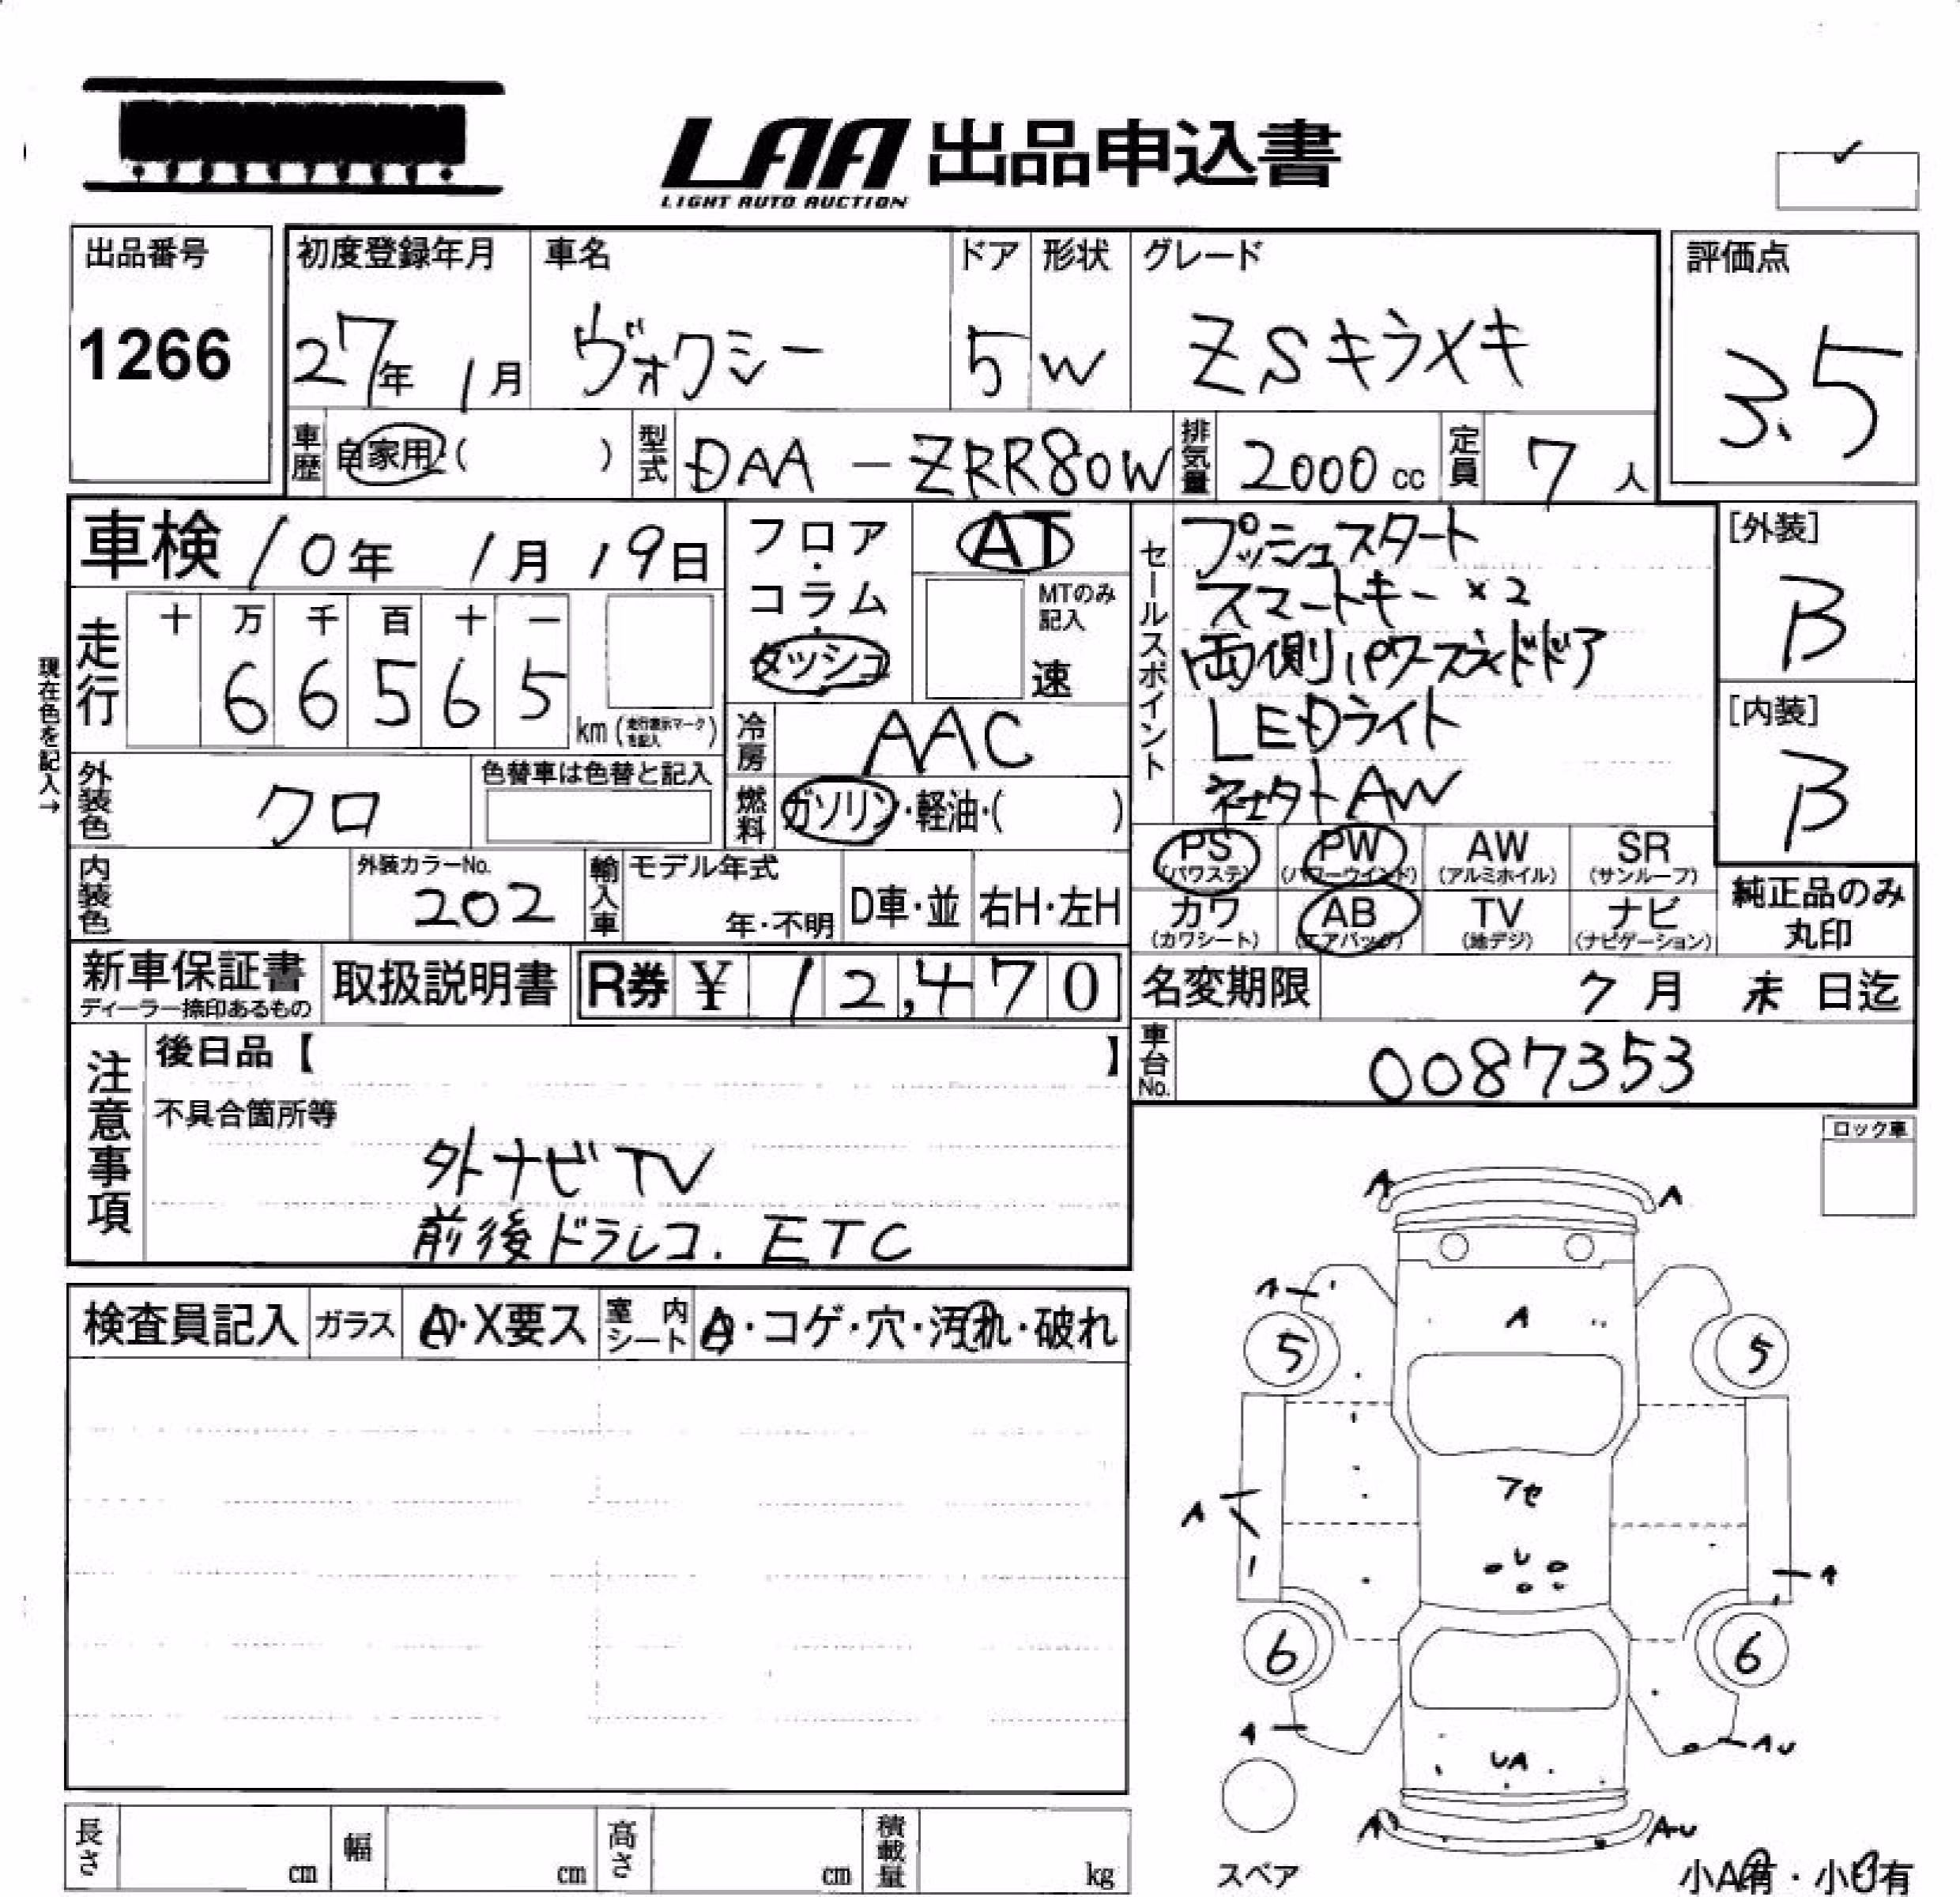 LAA 出品申込書
LIGHT AUTO AUCTION
出品番号
1266
初度登録年月 車名 ドア 形状 グレード 評価点
27年 1月 ヴォクシー 5 W ZSキラメキ 3.5
車歴 自家用( ) 型式 DAA-ZRR80W 排気量 2000cc 定員 7人
車検 10年 1月 19日
フロア・コラム・ダッシュ
AT
MTのみ記入
速
走行 十 万 千 百 十 一
66565 km (走行表示マークを記入)
現在色を記入→
冷房 AAC
外装色 クロ
色替車は色替と記入
燃料 ガソリン・軽油・( )
内装色
外装カラーNo.
202
輸入車 モデル年式
年・不明 D車・並 右H・左H
セールスポイント
プッシュスタート
スマートキー×2
両側パワースライドドア
LEDライト
AW
[外装]
B
[内装]
B
PS (パワステ) PW (パワーウインド) AW (アルミホイル) SR (サンルーフ)
カワ (カワシート) AB (エアバッグ) TV (地デジ) ナビ (ナビゲーション)
純正品のみ
丸印
新車保証書
ディーラー捺印あるもの
取扱説明書
R券 ¥ 12,470
名変期限 7月 末日迄
車台No. 0087353
注意事項
後日品【 】
不具合箇所等
外ナビTV
前後ドラレコ. ETC
ロック車
検査員記入 ガラス A・X要ス 室内シート A・コゲ・穴・汚れ・破れ
A A
A
A
5 5
A
フセ
U
A
6 6
A AU
UA
A AU
スペア
長さ cm 幅 cm 高さ cm 積載量 kg
小A有・小U有